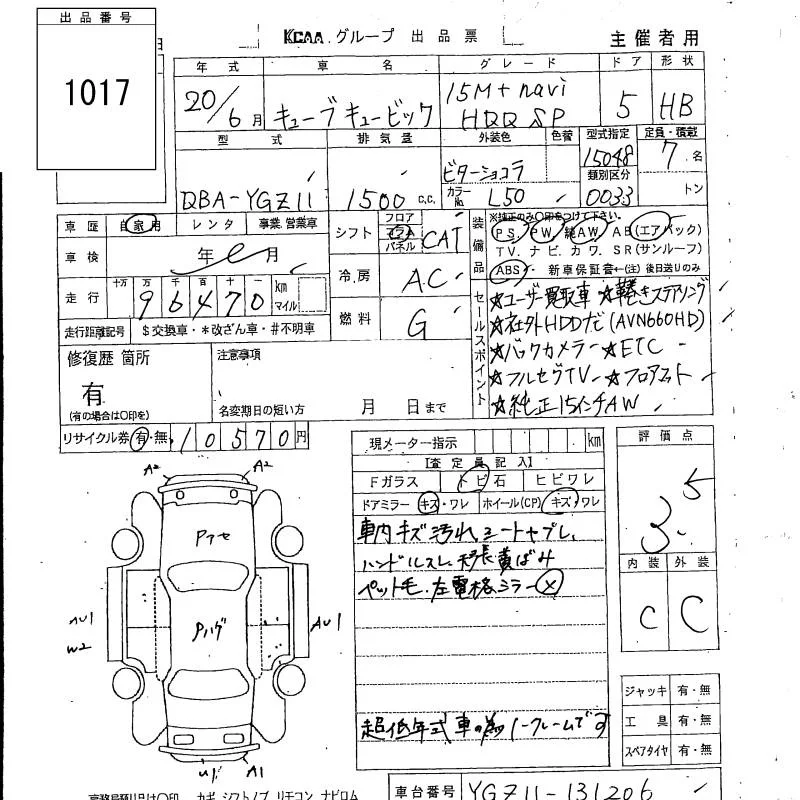 出品番号
1017
KCAA グループ 出品票
主催者用
年式 車名 グレード ドア 形状
20/6月 キューブキュービック 15M+navi HDD SP 5 HB
型式 排気量 外装色 色替 型式指定 定員・積載
DBA-YGZ11 1500 c.c. ビターショコラ 15048 7名
カラーNo. L50 類別区分 0033 トン
車歴 自家用 レンタ 事業 営業車
車検 年 月
走行 十万 万 千 百 十 一 km マイル
96470
走行距離記号 $交換車・*改ざん車・#不明車
シフト フロア コラム パネル CAT
冷房 AC
燃料 G
装備品 ※純正のみ○印をつけて下さい。
PS PW 純AW AB(エアバック)
TV. ナビ カワ. SR(サンルーフ)
ABS・新車保証書←(注) 後日送りのみ
セールスポイント
★ユーザー買取車 ★革巻きステアリング
★社外HDDナビ(AVN660HD)
★バックカメラ ★ETC
★フルセグTV ★フロアマット
★純正15インチAW
修復歴 箇所
有
(有の場合は○印を)
注意事項
名変期日の短い方 月 日まで
リサイクル券 有・無 10570円
現メーター指示 km
【査定員記入】
Fガラス トビ石 ヒビワレ
ドアミラー キズ・ワレ ホイール(CP) キズ・ワレ
車内キズ汚れ、シートヤブレ、
ハンドルスレ 天張黄ばみ
ペット毛. 左電格ミラー×
超低年式車の為ノークレームです
評価点
3.5
内装 外装
C C
ジャッキ 有・無
工具 有・無
スペアタイヤ 有・無
A2 A2
Pアセ
Pハゲ
AU1
W2
AU1
U1 A1
車台番号 YGZ11-131206